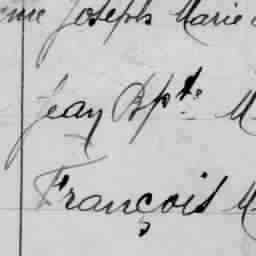 Joseph Marie
Jean Bpte M
François M